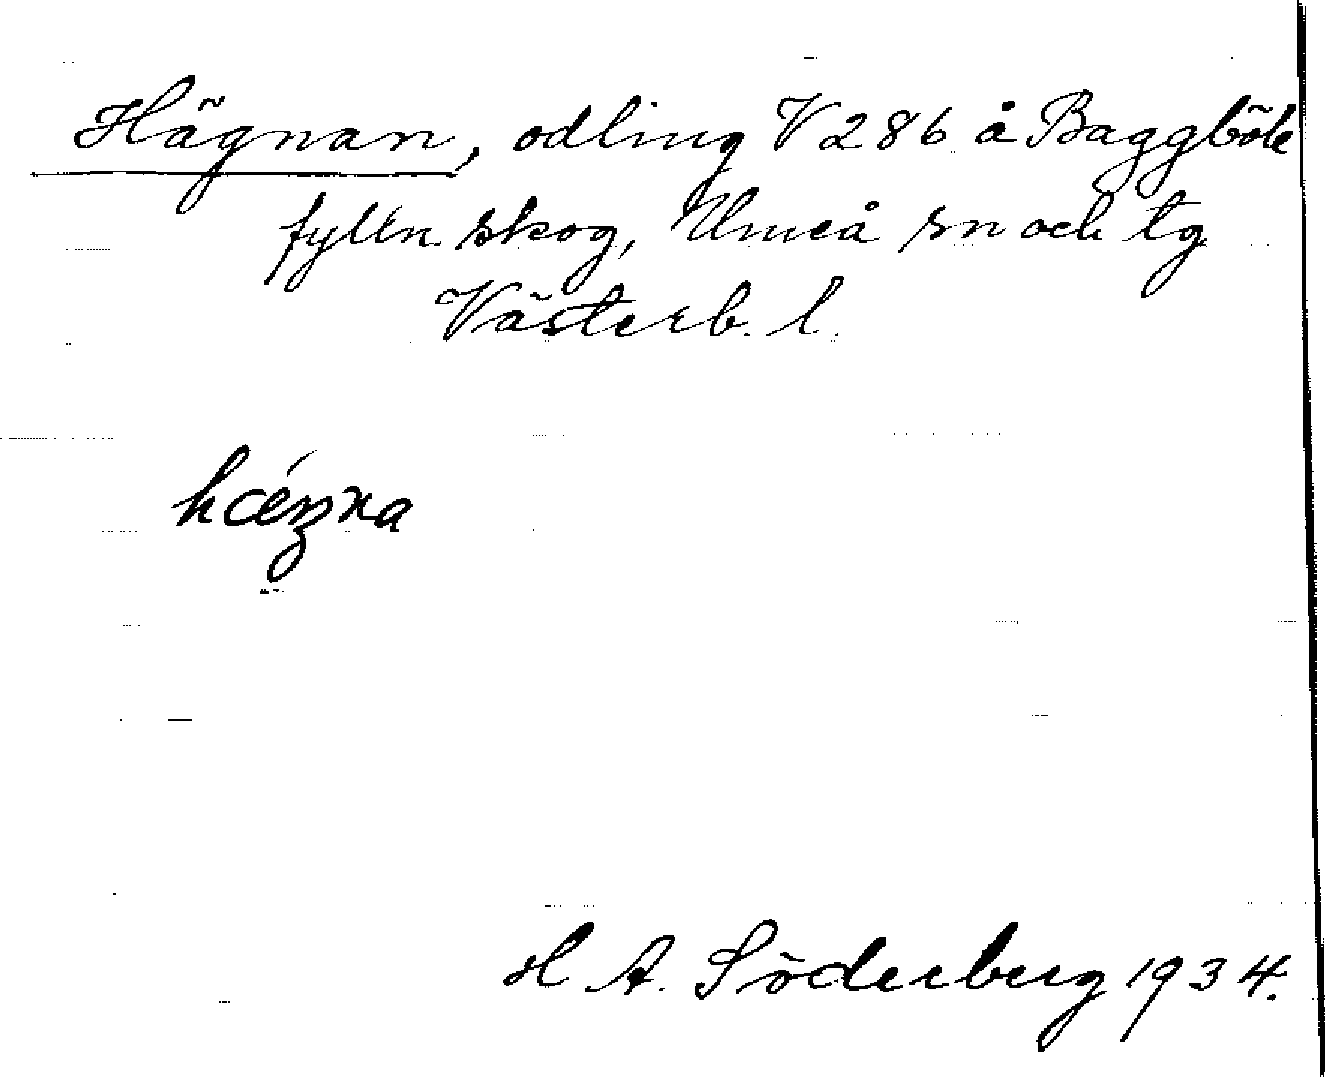 Hägnan, odling V 286 å Baggböle
fylln. skog, Umeå sn och tg
Västerb. l.
H A. Söderberg 1934.